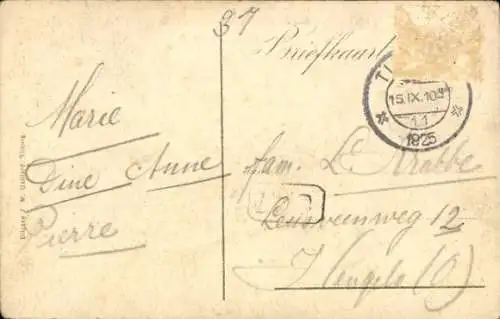 37
Briefkaart
15.IX.10
11
1925
Marie
Dine Anne
Pierre
fam. L. Krabbe
12
Hengelo (O)